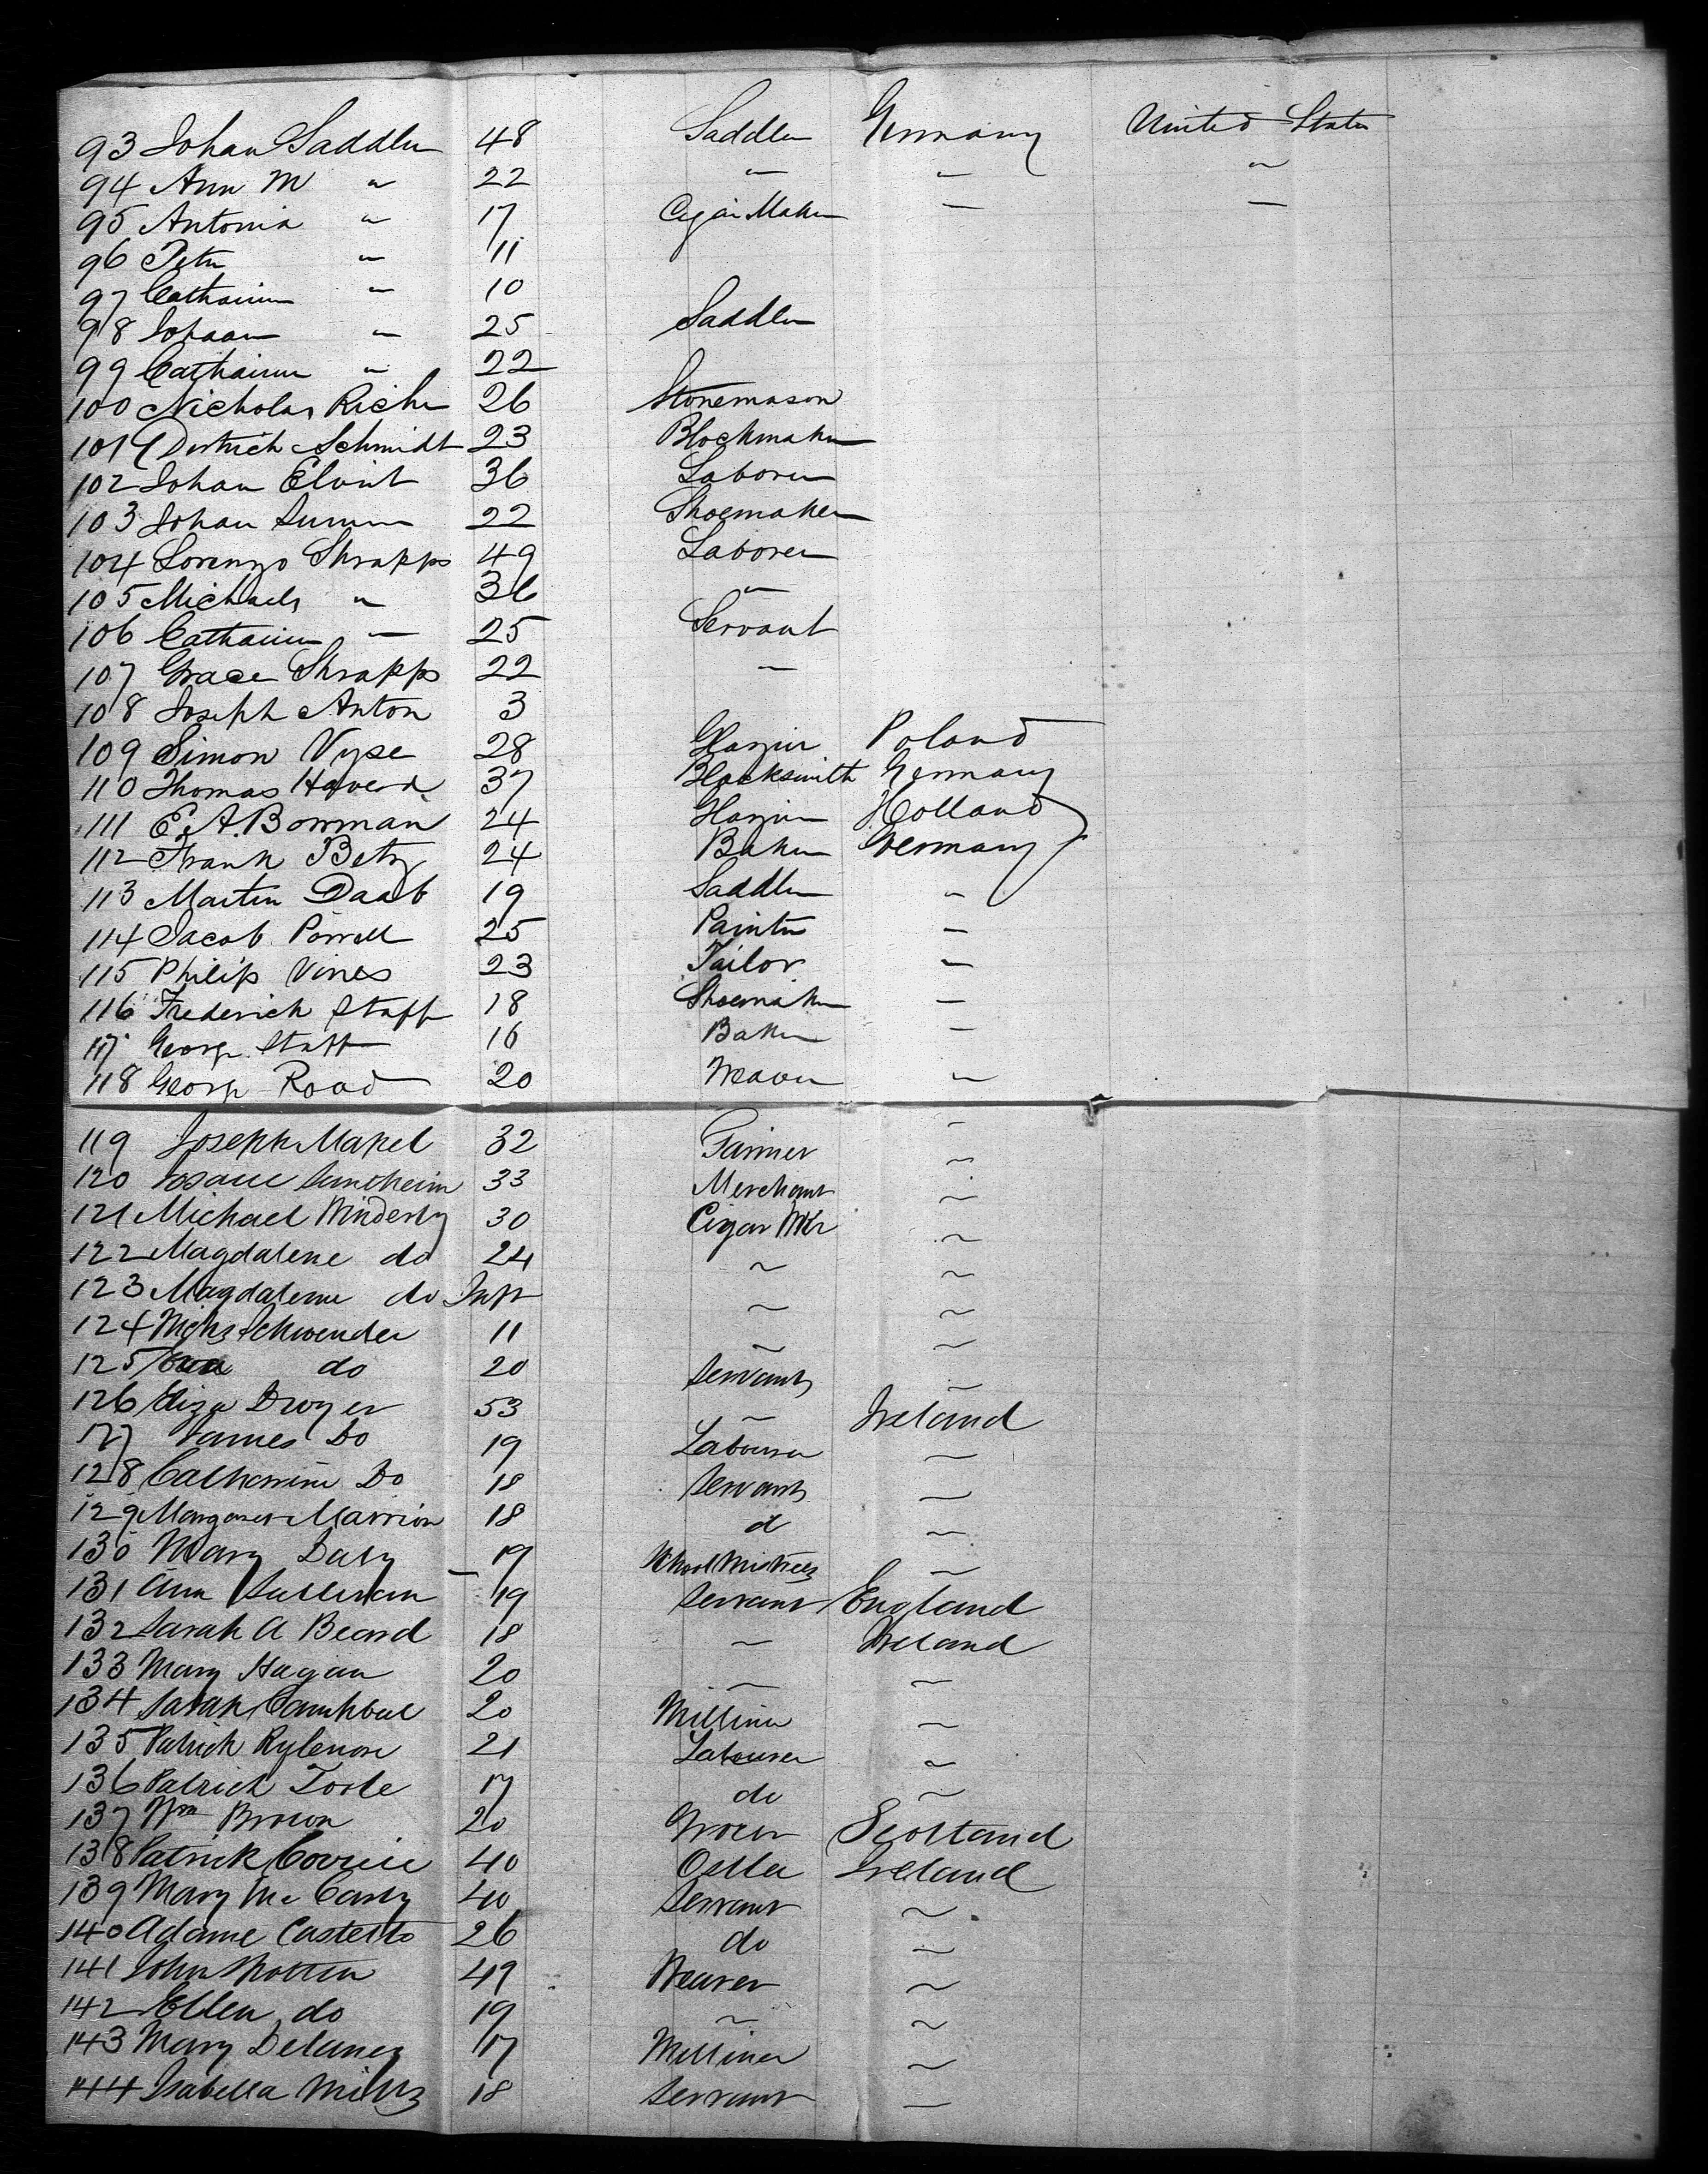 93 Johan Saddler 48 Saddler Germany United States
94 Ann M " 22 " " "
95 Antonia " 17 Cigar Maker " "
96 Peter " 11
97 Catharine " 10
98 Johaan " 25 Saddler
99 Catharine " 22
100 Nicholas Richer 26 Stonemason
101 Dietrich Schmidt 23 Blockmaker
102 Johan 36 Laborer
103 Johan 22 Shoemaker
104 Lorenzo Shrapps 49 Laborer
105 Michael " 36 "
106 Catharine " 25 Servant
107 Grace Shrapps 22 "
108 Joseph Anton 3
109 Simon Vyse 28 Glazier Poland
110 Thomas 37 Blacksmith Germany
111 E. A. Bowman 24 Glazier Holland
112 Frank Betz 24 Baker Germany
113 Martin Daab 19 Saddler "
114 Jacob Powell 25 Painter "
115 Philip Vines 23 Tailor "
116 Frederick Stapf 18 Shoemaker "
117 George Stapf 16 Baker "
118 George Road 20 Weaver "
119 Joseph Mapel 32 Farmer "
120 33 Merchant "
121 Michael Winderly 30 Cigar Mkr "
122 Magdalene do 24 " "
123 Magdalene do Inft " "
124 Schwender 11 " "
125 do 20 Servant "
126 Eliza Dwyer 53 " Ireland
127 James Do 19 Labourer "
128 Catherine Do 18 Servant "
129 Margaret Marrion 18 d "
130 Mary Daly 19 School Mistress "
131 Ann Sullivan 19 Servant England
132 Sarah A Beard 18 " Ireland
133 Mary Hagan 20 " "
134 Sarah Campbell 20 Milliner "
135 Patrick 21 Labourer "
136 Patrick Toole 17 do "
137 Wm Brown 20 Grocer Scotland
138 Patrick 40 Ostler Ireland
139 Mary McCarty 40 Servant "
140 Adame Castello 26 do "
141 John 49 Weaver "
142 Ellen do 19 " "
143 Mary Delaney 17 Milliner "
144 Isabella Mills 18 Servant "